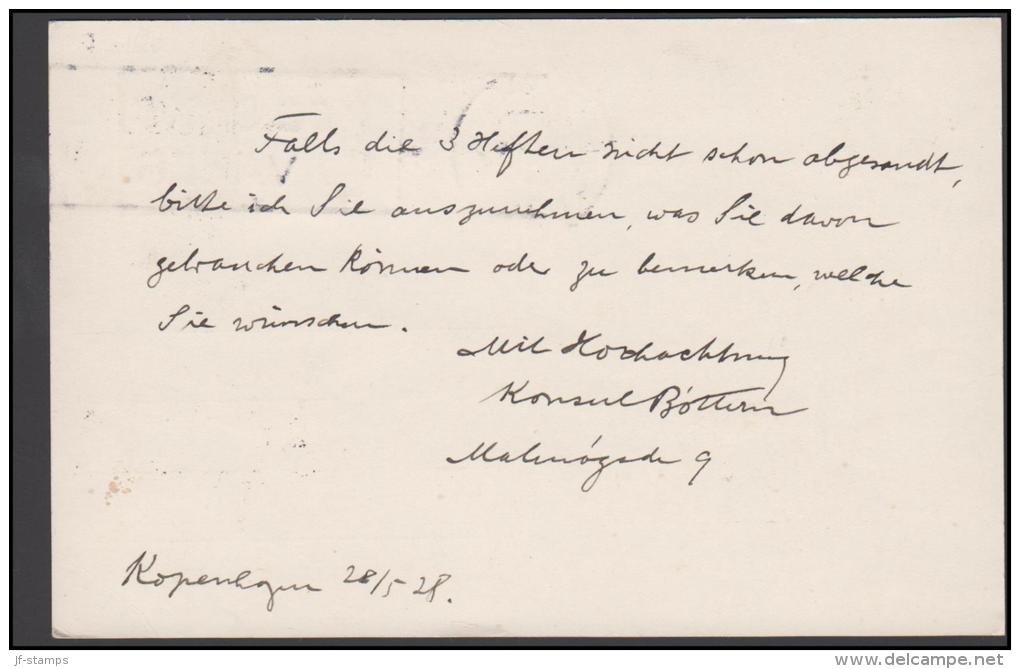 Falls die 3 Heften nicht schon abgesandt,
bitte ich Sie auszunehmen, was Sie davon
gebrauchen können oder zu bemerken, welche
Sie wünschen.
Mit Hochachtung
Konsul
Malmögade 9
Kopenhagen 28/5 28.
jf-stamps
www.delcampe.net